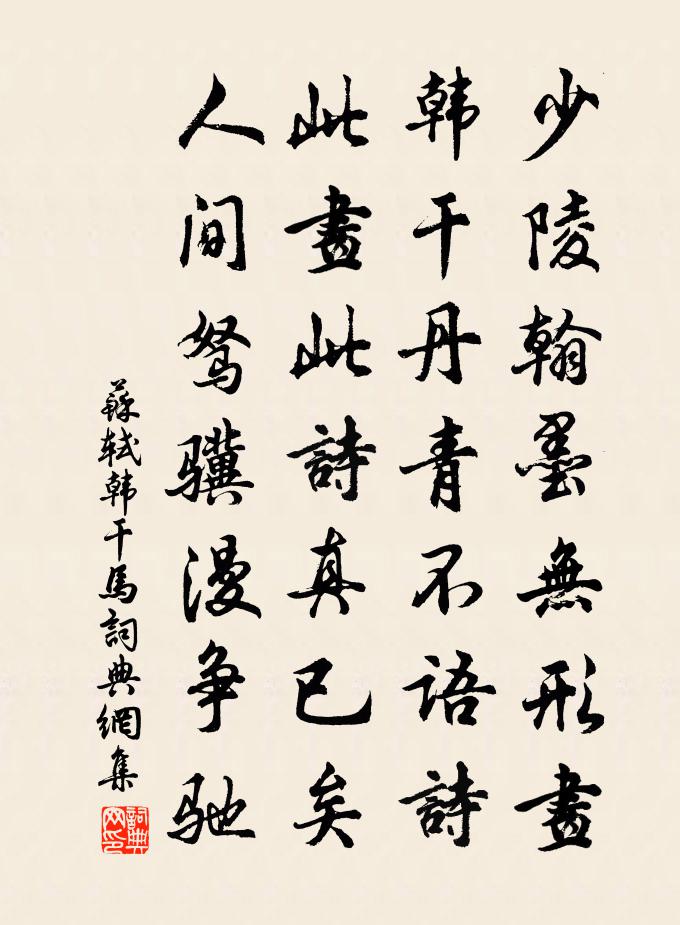 少陵翰墨無形畫
韩干丹青不语詩
此畫此詩真已矣
人间驽骥漫争驰
蘇轼韩干馬詞典網集
詞典网印